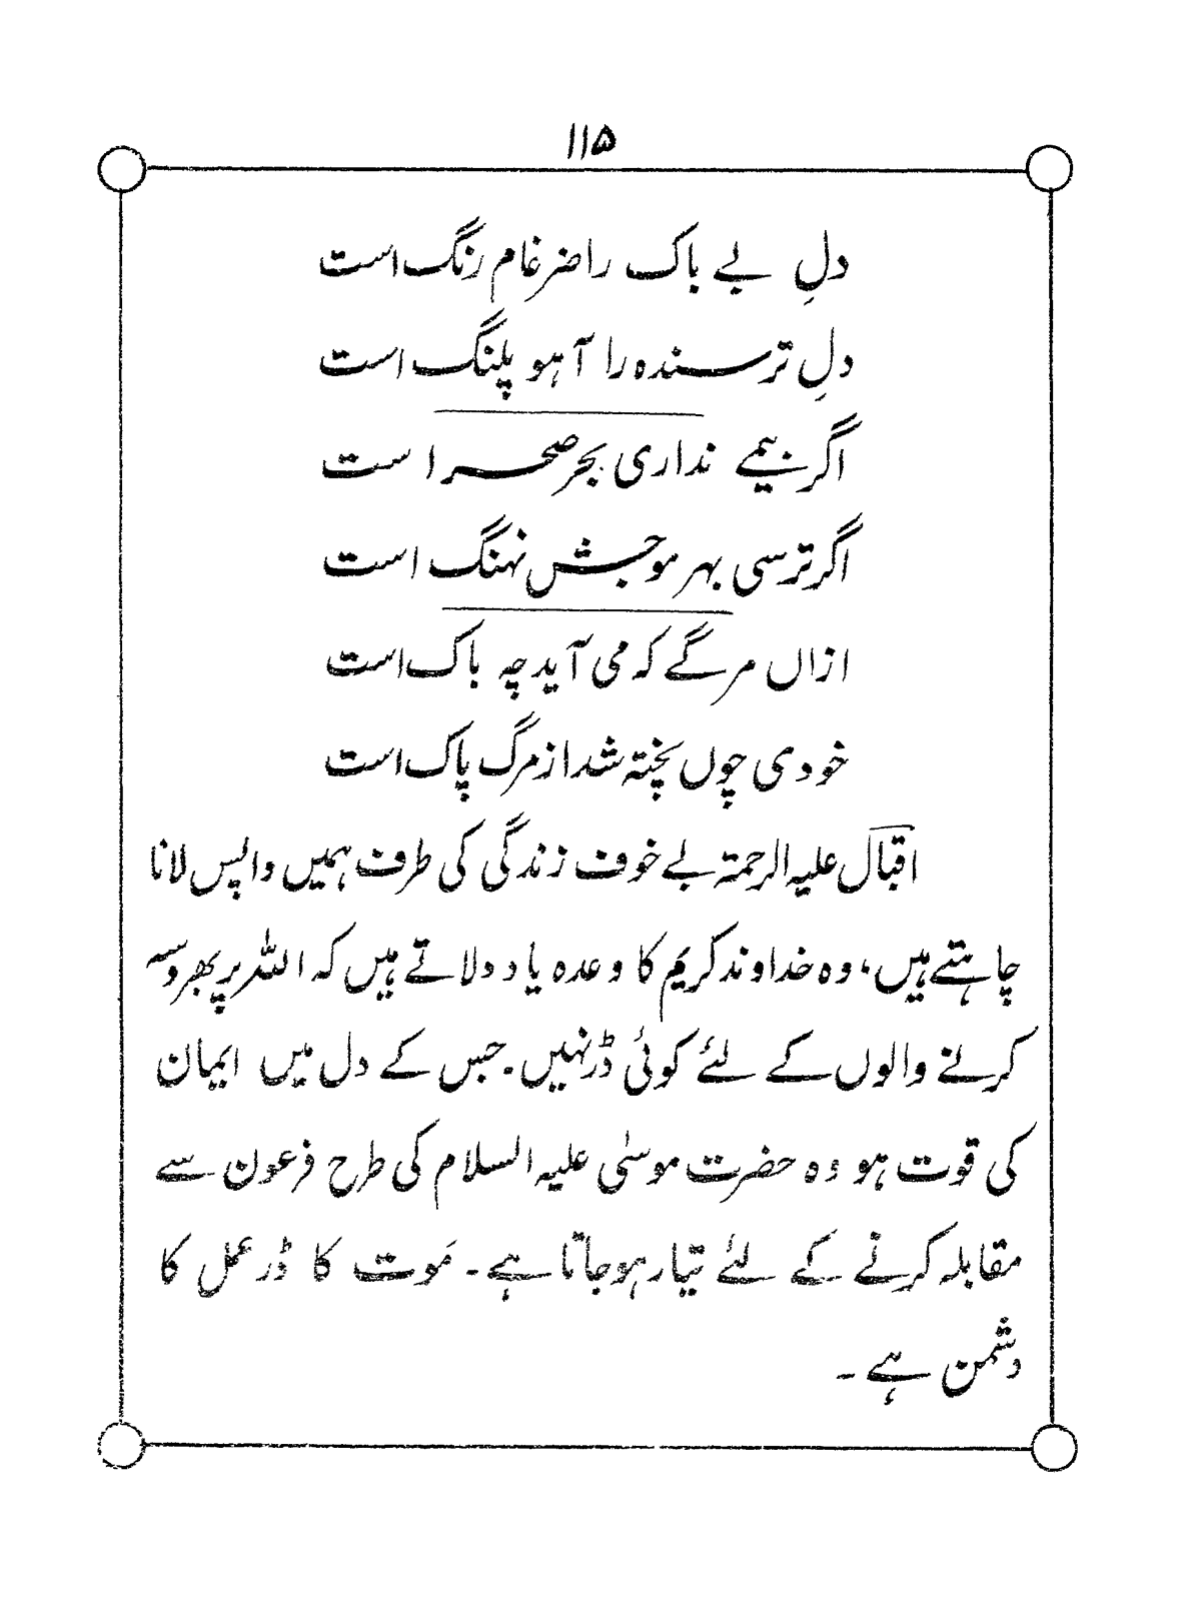 ۱۱۵
دلِ بے باک را ضرغام رنگ است
دلِ ترسندہ را آہو پلنگ است
اگر بیمے نداری بحر صحرا ست
اگر ترسی بہر موجش نہنگ است
ازاں مرگے کہ می آید چہ باک است
خودی چوں پختہ شد از مرگ پاک است
اقبال علیہ الرحمۃ بے خوف زندگی کی طرف ہمیں واپس لانا
چاہتے ہیں، وہ خداوند کریم کا وعدہ یاد دلاتے ہیں کہ اللہ پر بھروسہ
کرنے والوں کے لئے کوئی ڈر نہیں۔ جس کے دل میں ایمان
کی قوت ہو وہ حضرت موسٰی علیہ السلام کی طرح فرعون سے
مقابلہ کرنے کے لئے تیار ہو جاتا ہے۔ مَوت کا ڈر عمل کا
دشمن ہے۔